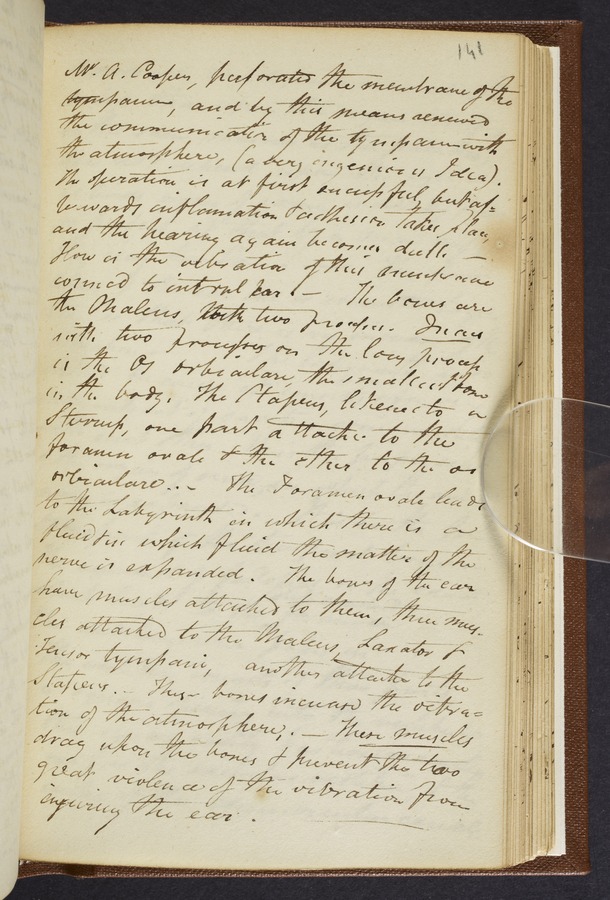 141
Mr. A. Cooper, perforates the membrane of the
tympanum, and by this means renewed
the communication of the tympanum with
the atmosphere, (a very ingenious Idea).
The operation is at first successful, but af-
terwards inflamation & adhesion takes place,
and the hearing again becomes dull. —
How is the vibration of this membrane
conveied to internal Ear. — The bones are
the Maleus, with two process. Incus
with two processes on the long process
is the Os orbiculare, the smallest bone
in the body. The Stapes, likened to a
Stirrup, one part attache to the
foramen ovale & the other to the os
orbiculare. — The Foramen ovale leads
to the Labyrinth in which there is a
fluid in which fluid the matter of the
nerve is expanded. The bones of the ear
have muscles attached to them, three mus-
cles attached to the Maleus, Laxator &
Tensor tympani, another attache to the
Stapes. — These bones increase the vibra-
tion of the atmosphere. — These muscles
drag upon the bones & prevent the too
great violence of the vibration from
injuring the ear.